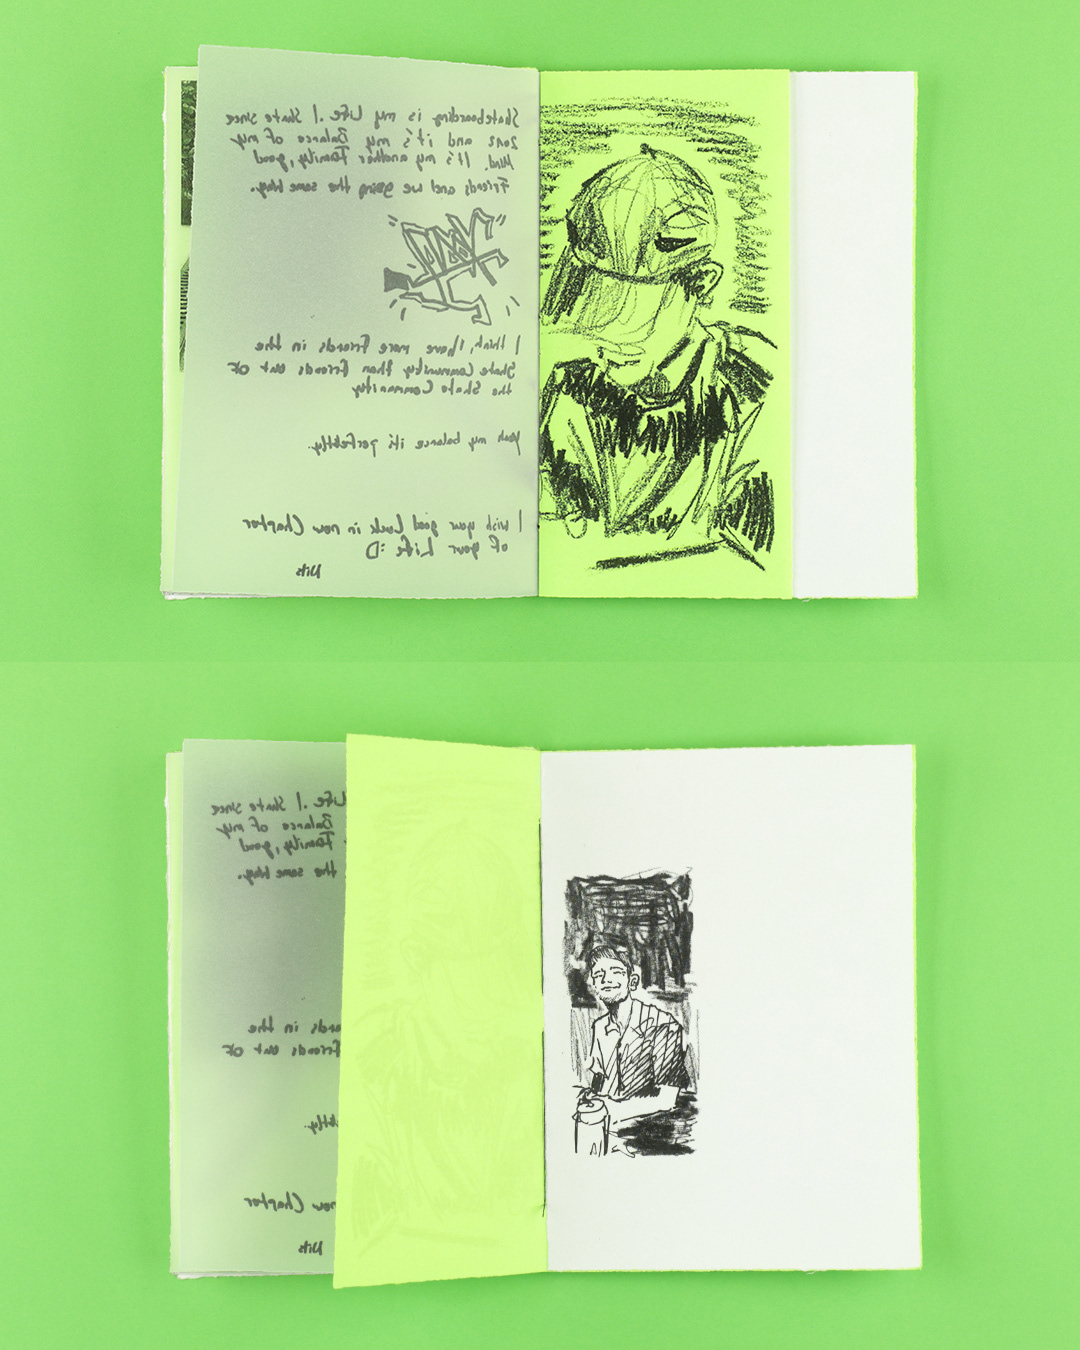 Skateboarding is my Life. I Skate since
and it's my Balance of my
Mind. It's my another Family, good
Friends and we going the same Way.
I think, I have more friends in the
Skate Community than friends out of
the Skate Community
yeah my balance it's perfektly.
I wish your good Luck in new Chapter
of your Life :D
Nils
Life. I Skate since
Balance of my
Family, good
the same Way.
in the
friends out of
new Chapter
Nils